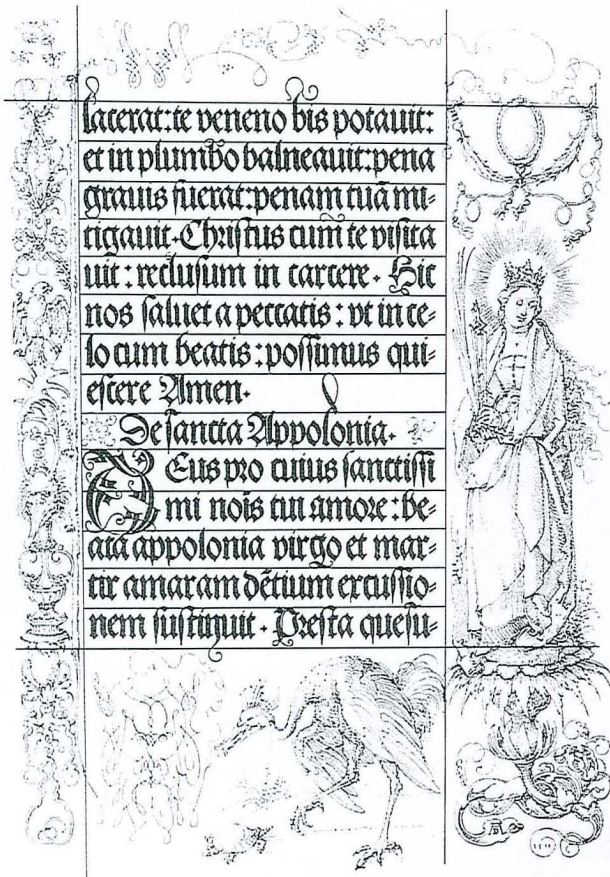 lacerat: te veneno bis potauit:
et in plumbo balneauit: pena
grauis fuerat: penam tuā mi-
tigauit. Christus cum te visita
uit: reclusum in carcere. Hic
nos saluet a peccatis: vt in ce-
lo cum beatis: possimus qui-
escere Amen.
De sancta Appolonia.
DEus pro cuius sanctissi
mi nois tui amore: be-
ata appolonia virgo et mar-
tir amaram dētium excussio-
nem sustinuit. Presta quesu-